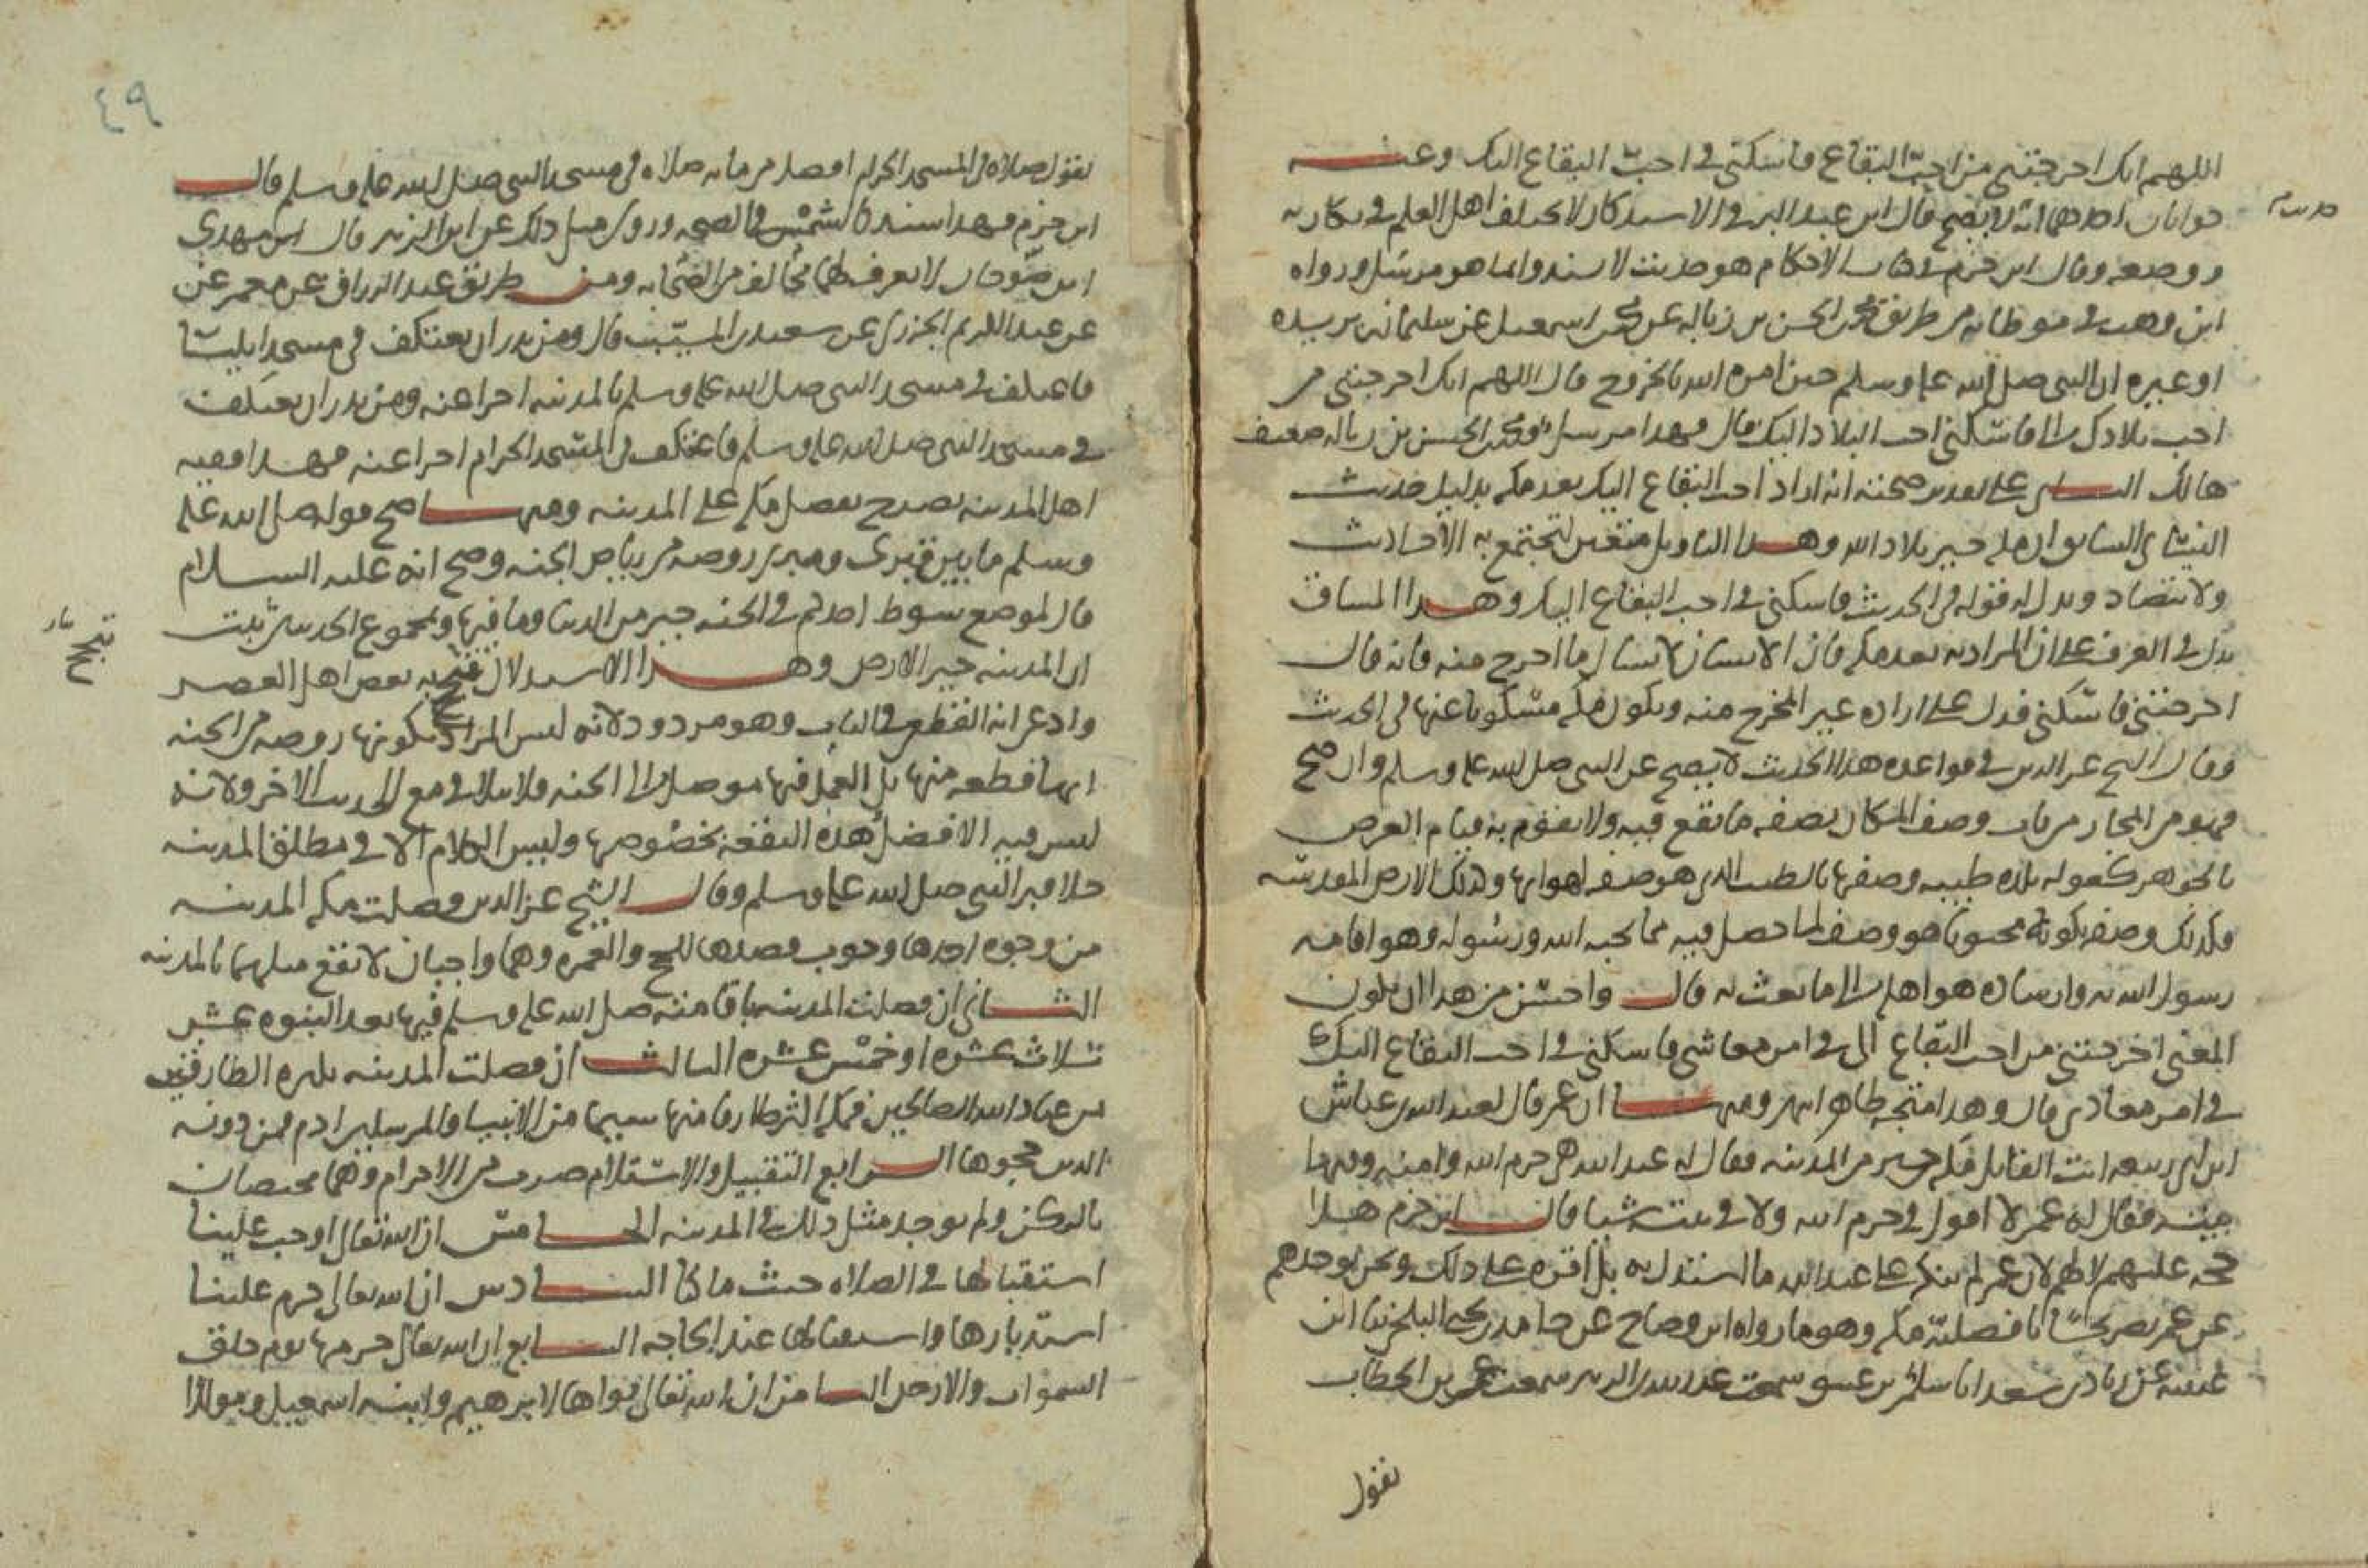 اللهم انك اخرجتني من احب البقاع فاسكني في احب البقاع اليك وعنه
جوابان احدهما انه لا يصح قال ابن عبد البر في الاستذكار لا يختلف اهل العلم في نكارته
ووضعه وقال ابن حزم في كتاب الاحكام هو حديث لا يسند وانما هو مرسل ورواه
ابن وهب في موطائه من طريق محمد بن الحسن بن زبالة عن محمد بن اسمعيل عن سليمان بن بريده
او غيره ان النبي صلى الله عليه وسلم حين امره الله بالخروج قال اللهم انك اخرجتني من
احب بلادك الي فاسكني احب البلاد اليك قال فهذا مرسل ومحمد بن الحسن بن زباله ضعيف
هالك الثاني على تقدير صحته انه اراد احب البقاع اليك بعد مكه بدليل حديث
النسائي السابق ان مكه خير بلاد الله وهذا التاويل متعين لتجتمع به الاحاديث
ولا تتضاد ويدل له قوله في الحديث فاسكني في احب البقاع اليك وهذا المساق
يدل في العرف على ان المراد به بعد مكه فان الانسان لا يسال ما اخرج منه فانه قال
اخرجتني فاسكني فدل على اراده غير المخرج منه وتكون مكه مسكوتا عنها في الحديث
وقال الشيخ عز الدين في قواعده هذا الحديث لا يصح عن النبي صلى الله عليه وسلم وان صح
فهو من المجاز من باب وصف المكان بصفه ما يقع فيه ولا يقوم به قيام العرض
بالجوهر كقوله بلده طيبه وصفها بالطيب الذي هو صفه لهوائها وكذلك الارض المقدسه
فكذلك وصفه بكونه محبوبا هو وصف لما حصل فيه مما يحبه الله ورسوله وهو اقامه
رسول الله به وارشاده هو اهله الى ما بعث به قال واحسن من هذا ان يكون
المعنى اخرجتني من احب البقاع الي في امر معاشي فاسكني في احب البقاع اليك
في امر معادي قال وهذا متجه ظاهر انتهى ومنها ان عمر قال لعبد الله بن عياش
ابن ابي ربيعه انت القائل مكه خير من المدينه فقال له عبد الله هي حرم الله وامنه وفيها
بيته فقال له عمر لا اقول في حرم الله ولا في بيته شيا قال ابن حزم هذا
حجه عليهم لا لهم لان عمر لم ينكر على عبد الله ما استدل به بل اقره على ذلك ونحن نوجدهم
عن عمر تصريحا بافضليه مكه وهو ما رواه ابن وضاح عن حامد بن يحيى البلخي ثنا ابن
عيينه عن زياد بن سعد انا سليمان بن عتيق سمعت عبد الله بن الزبير سمعت عمر بن الخطاب
يقول
٤٩
يقول صلاه في المسجد الحرام افضل من مائه صلاه في مسجد النبي صلى الله عليه وسلم قال
ابن حزم فهذا سند كالشمس في الصحه وروى مثل ذلك عن ابن الزبير قال ابن مهدي
ابن صوحان لا يعرف لهما مخالف من الصحابه ومن طريق عبد الرزاق عن معمر عن
عن عبد الكريم الجزري عن سعيد بن المسيب قال ومن نذر ان يعتكف في مسجد ايليا
فاعتكف في مسجد النبي صلى الله عليه وسلم بالمدينه اجزا عنه ومن نذر ان يعتكف
في مسجد النبي صلى الله عليه وسلم فاعتكف في المسجد الحرام اجزا عنه فهذا فقيه
اهل المدينه يصرح بفضل مكه على المدينه ومنها صح قوله صلى الله عليه
وسلم ما بين قبري ومنبري روضه من رياض الجنه وصح انه عليه السلام
قال لموضع سوط احدكم في الجنه خير من الدنيا وما فيها وبمجموع الحديثين يثبت
ان المدينه خير الارض وهذا الاستدلال به بعض اهل العصر
وادعى انه القطع في الباب وهو مردود لانه ليس المراد بكونها روضه من الجنه
انها قطعه منها بل العمل فيها موصل الى الجنه فلا يلاقي مع الحديث الاخر ولانه
ليس فيه الا فضل هذه البقعه بخصوصها وليس الكلام الا في مطلق المدينه
خلا قبر النبي صلى الله عليه وسلم وقال الشيخ عز الدين فضلت مكه المدينه
من وجوه احدها وجوب قصدها للحج والعمره وهما واجبان لا يقع مثلهما بالمدينه
الثاني ان فضلت المدينه باقامته صلى الله عليه وسلم فيها بعد النبوه عشر
ثلاث عشره او خمس عشره الثالث ان فضلت المدينه بكثره الطارقين
من عباد الله الصالحين فمكه اكثر طارقا منها سيما من الانبيا والمرسلين ادم فمن دونه
الذين حجوها الرابع التقبيل والاستلام ضرب من الاحرام وهما مختصان
بالركن ولم يوجد مثل ذلك في المدينه الخامس ان الله تعالى اوجب علينا
استقبالها في الصلاه حيث ما كنا السادس ان الله تعالى حرم علينا
استدبارها واستقبالها عند الحاجه السابع ان الله تعالى حرمها يوم خلق
السموات والارض الثامن ان الله تعالى بواها لابرهيم وابنه اسمعيل ومولدا